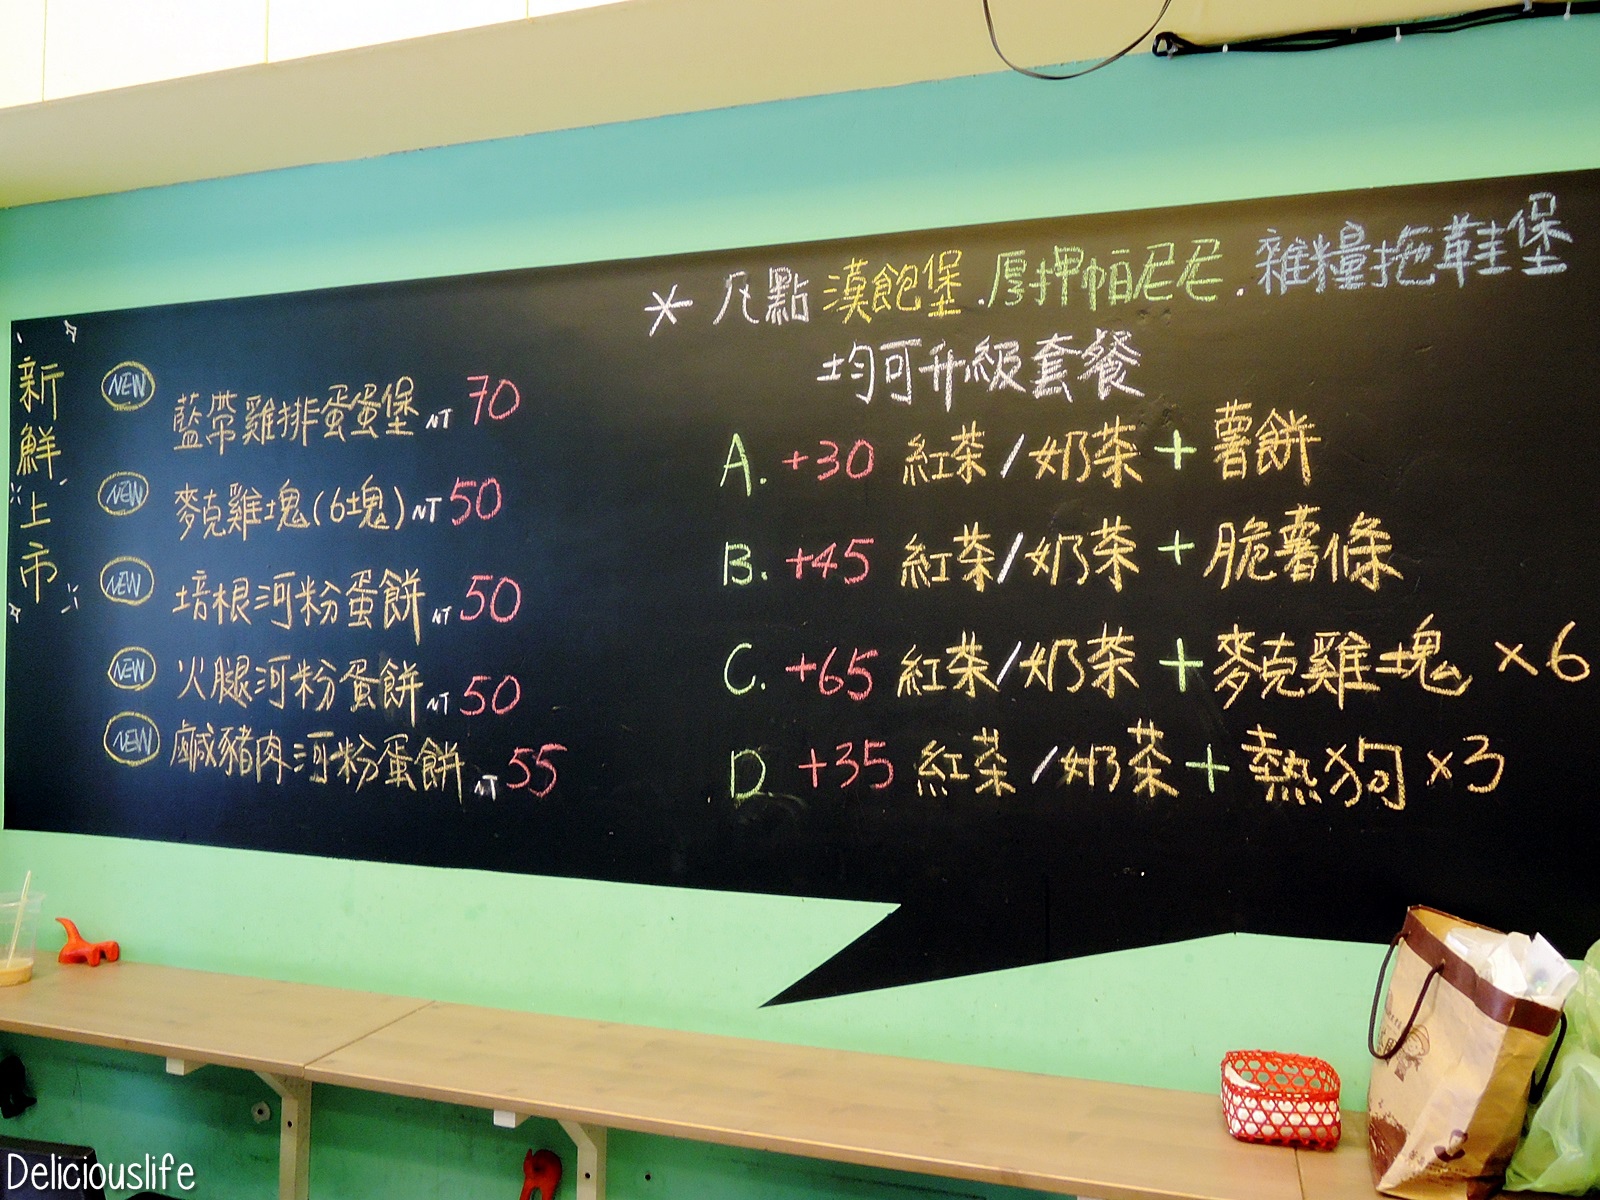 新鮮上市
NEW 藍帶雞排蛋蛋堡 NT 70
NEW 麥克雞塊(6塊) NT 50
NEW 培根河粉蛋餅 NT 50
NEW 火腿河粉蛋餅 NT 50
NEW 鹹豬肉河粉蛋餅 NT 55
* 凡點漢飽堡.厚押帕尼尼.雜糧拖鞋堡
均可升級套餐
A. +30 紅茶/奶茶+薯餅
B. +45 紅茶/奶茶+脆薯條
C. +65 紅茶/奶茶+麥克雞塊 x6
D. +35 紅茶/奶茶+熱狗 x3
Deliciouslife